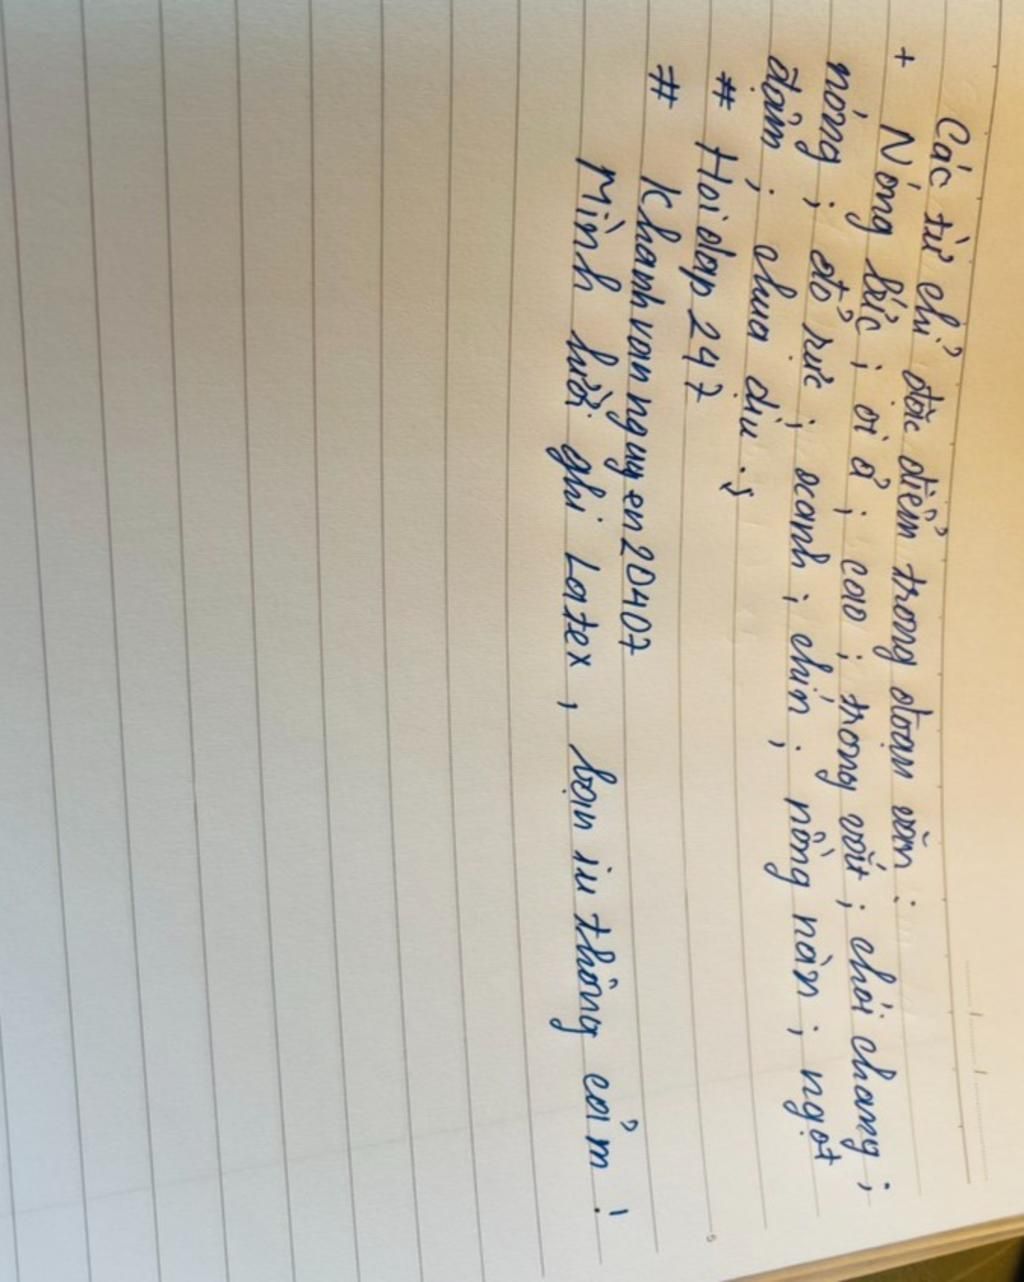 Các từ chỉ đặc điểm trong đoạn văn :
+ Nóng bức ; oi ả ; cao ; trong vắt ; chói chang ;
nóng ; đỏ rực ; xanh ; chín ; nồng nàn ; ngọt
đậm ; chua dịu .
# Hoidap 247
# Khanhvannguyen20407
Mình lười ghi Latex , bạn iu thông cảm !